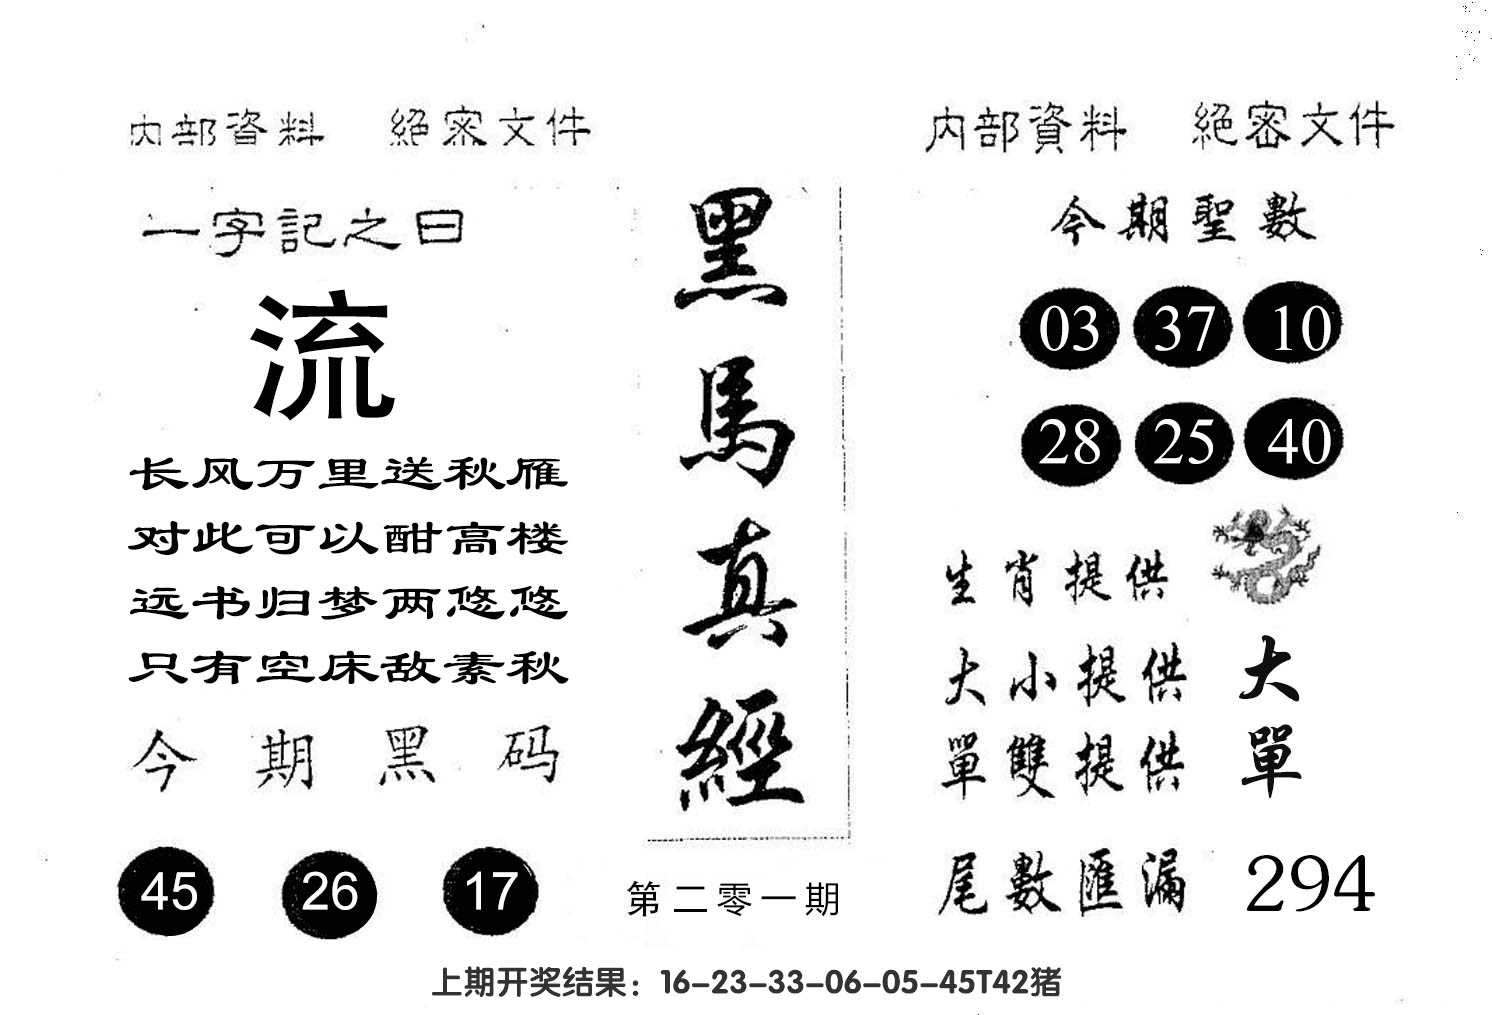 内部資料 絕密文件
一字記之曰
流
长风万里送秋雁
对此可以酣高楼
远书归梦两悠悠
只有空床敌素秋
今期黑码
45 26 17
黑馬真經
第二零一期
内部資料 絕密文件
今期聖數
03 37 10
28 25 40
生肖提供
大小提供 大
單雙提供 單
尾數匯漏 294
上期开奖结果：16-23-33-06-05-45T42猪